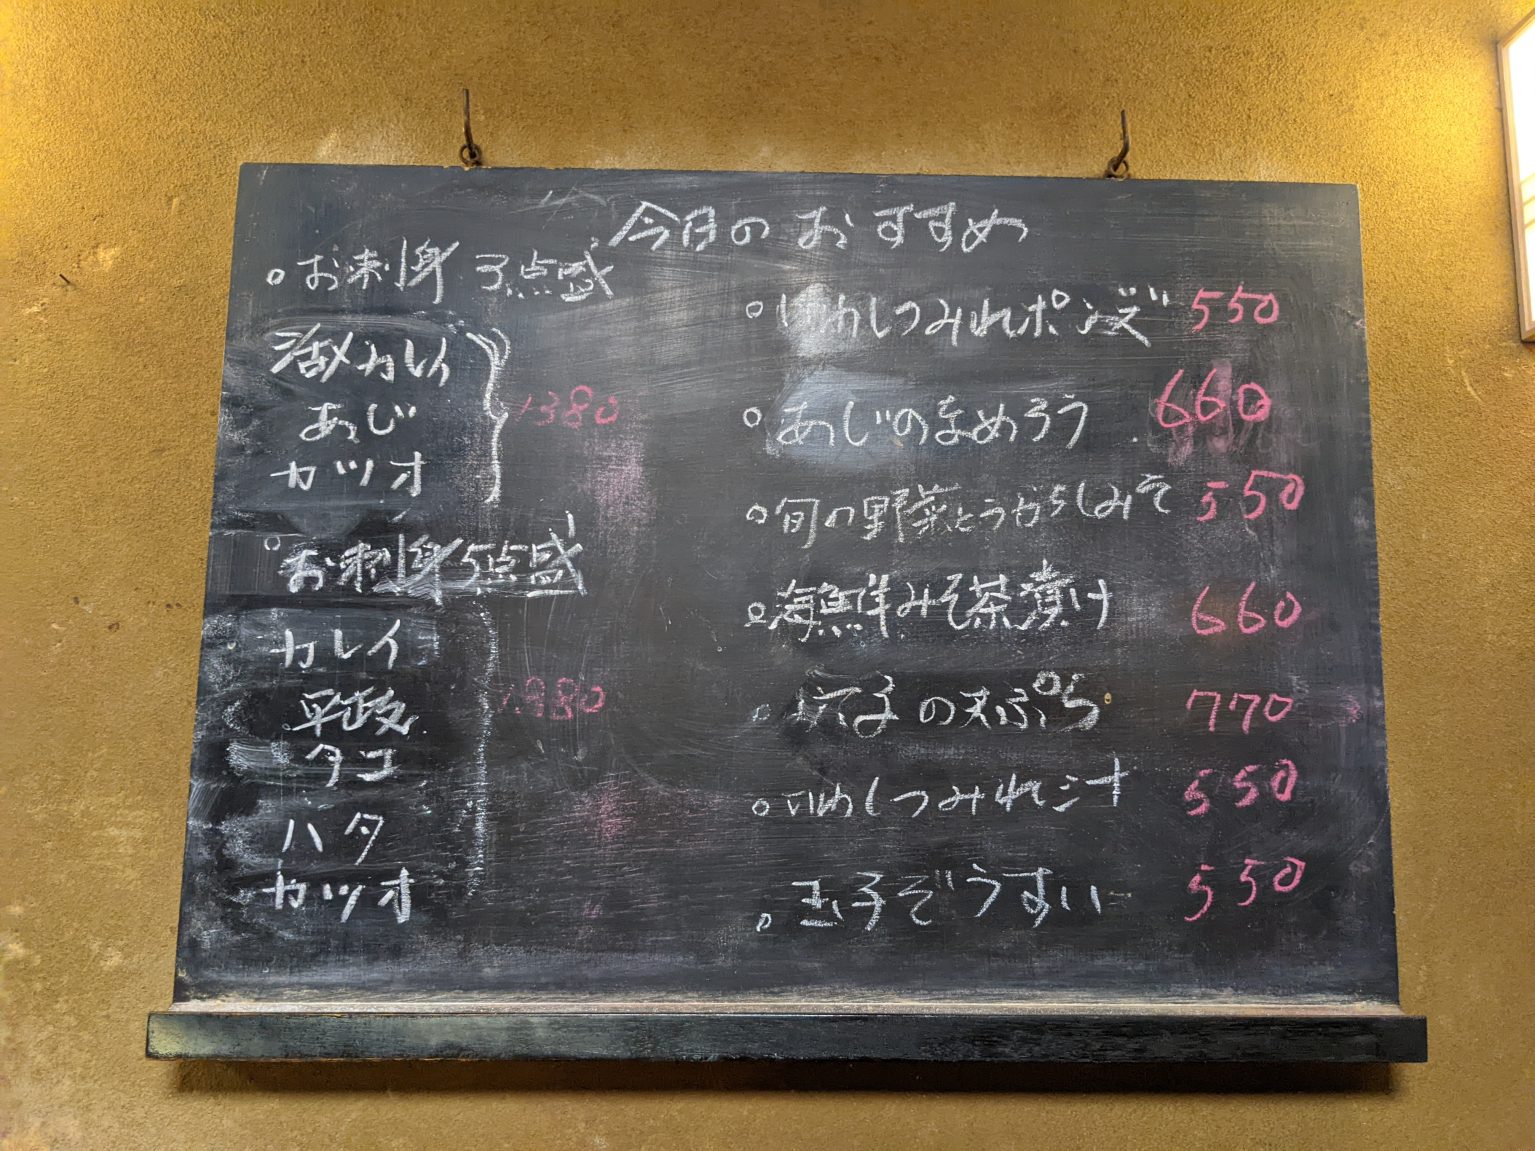 今日のおすすめ
○お刺身 3点盛
活〆カレイ
あじ
カツオ
1380
○お刺身5点盛
カレイ
平政
タコ
ハタ
カツオ
1880
○いわしつみれポンズ 550
○あじのなめろう 660
○旬の野菜とうがらしみそ 550
○海鮮みそ茶漬け 660
○穴子の天ぷら 770
○いわしつみれ汁 550
○玉子ぞうすい 550